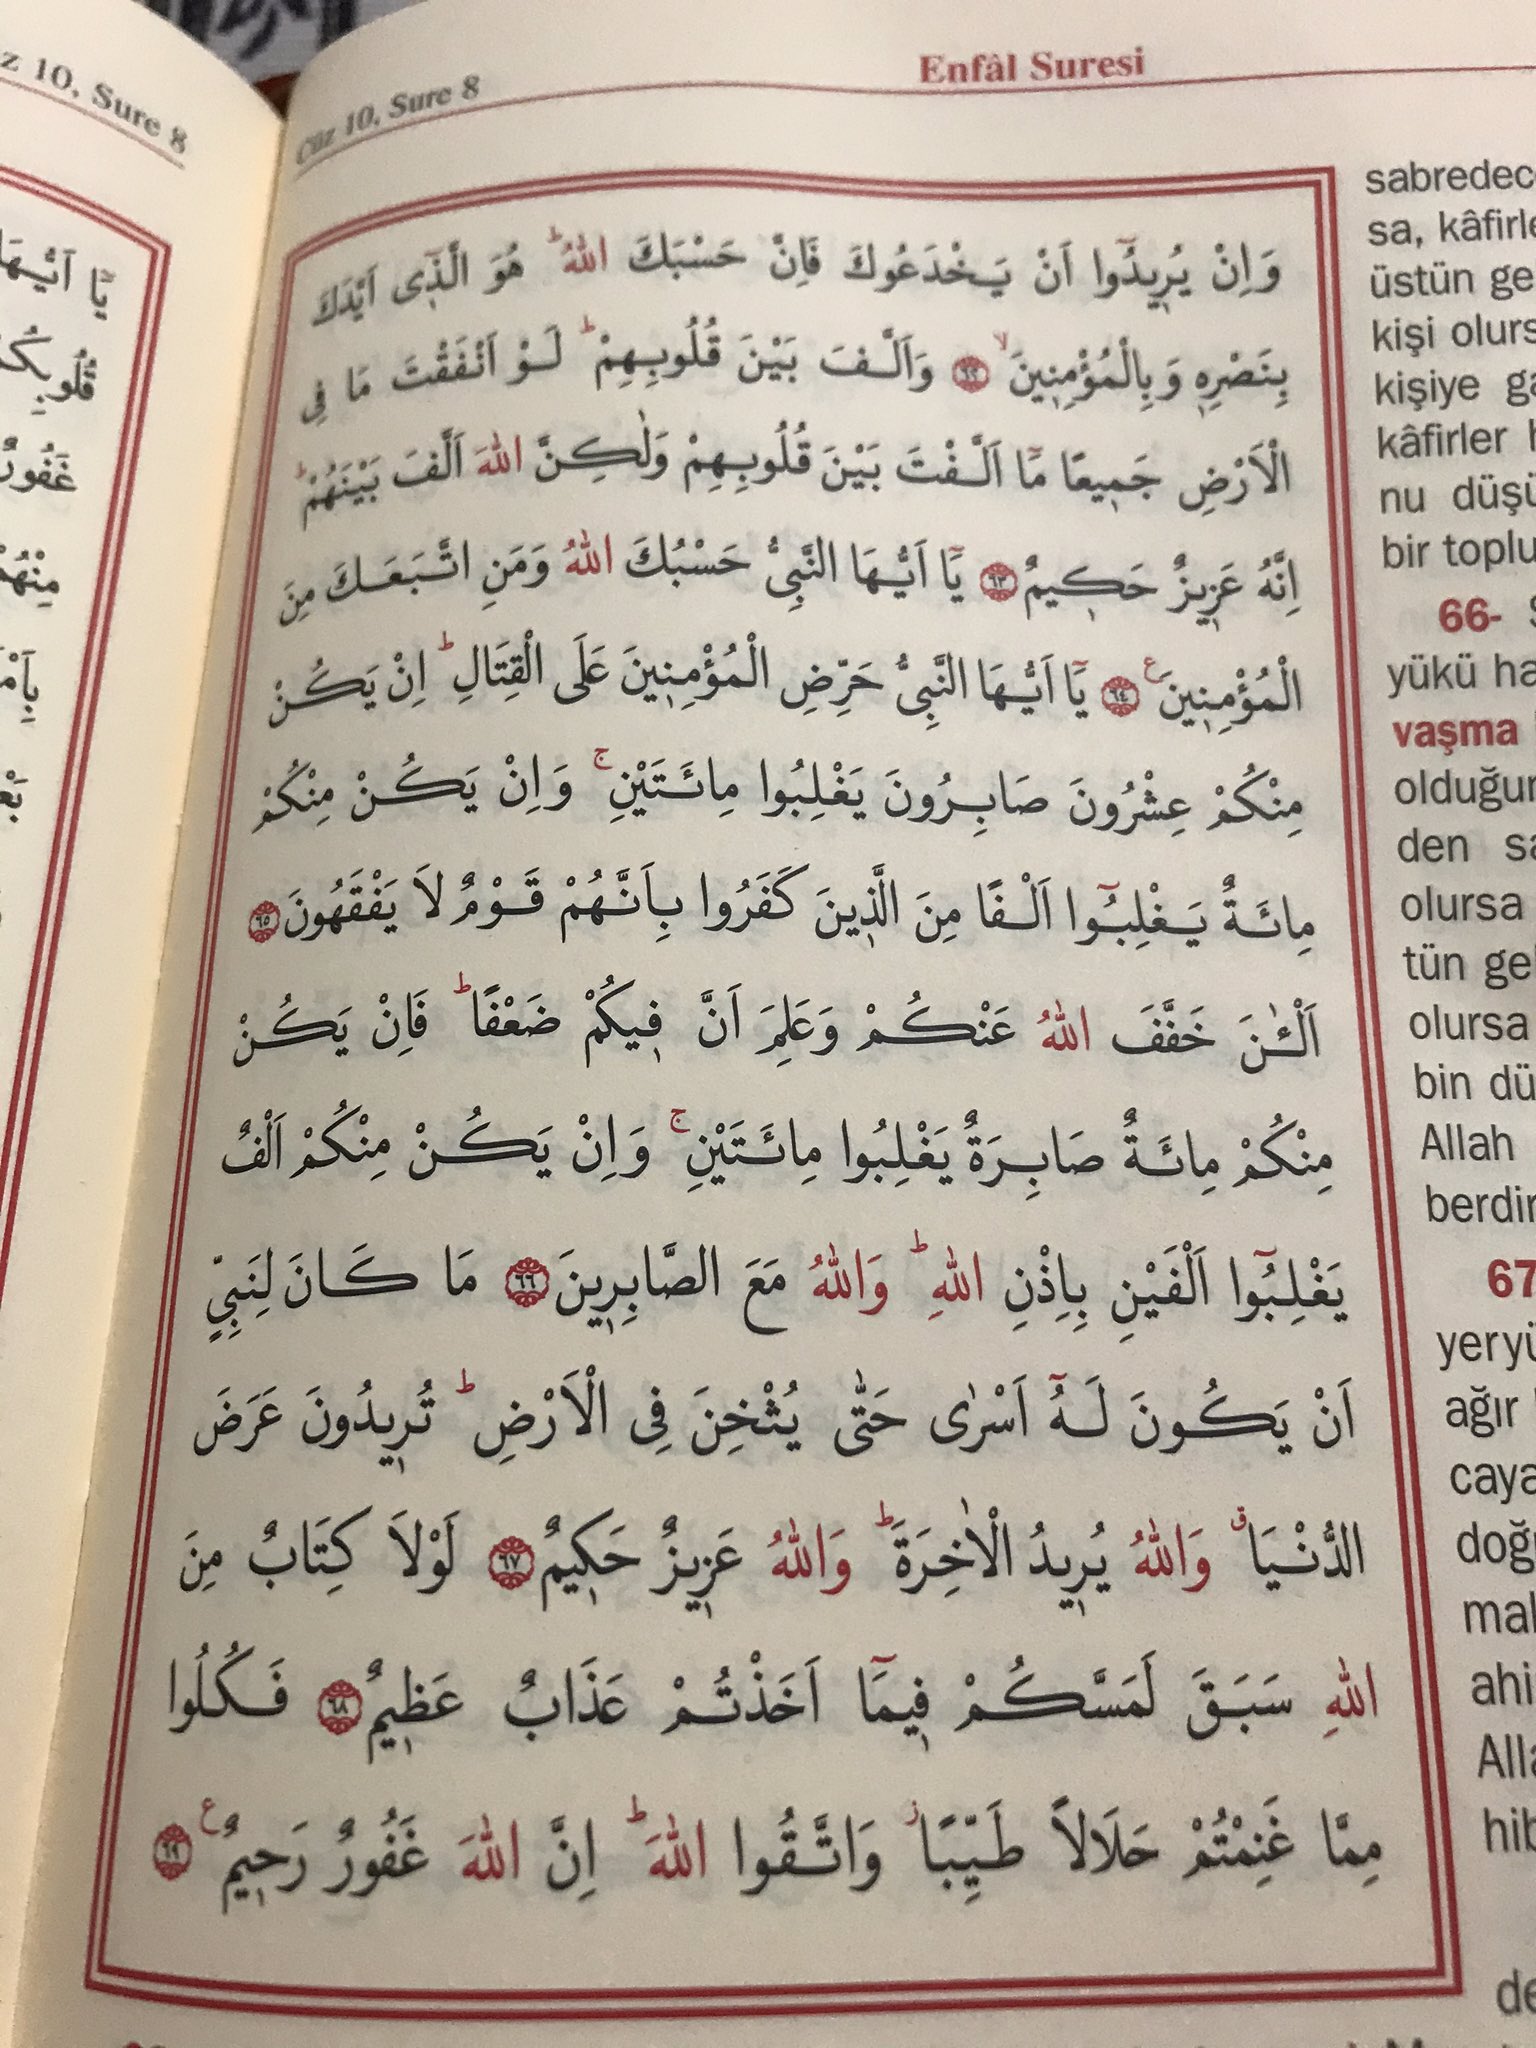 10, Sure 8
Cüz 10, Sure 8
Enfâl Suresi
وَاِنْ يُرِيدُٓوا اَنْ يَخْدَعُوكَ فَاِنَّ حَسْبَكَ اللّٰهُۜ هُوَ الَّذ۪ٓى اَيَّدَكَ
بِنَصْرِه۪ وَبِالْمُؤْمِن۪ينَۙ ﴿٦٢﴾ وَاَلَّفَ بَيْنَ قُلُوبِهِمْۜ لَوْ اَنْفَقْتَ مَا فِى
الْاَرْضِ جَم۪يعًا مَٓا اَلَّفْتَ بَيْنَ قُلُوبِهِمْ وَلٰكِنَّ اللّٰهَ اَلَّفَ بَيْنَهُمْۜ
اِنَّهُ عَز۪يزٌ حَك۪يمٌ ﴿٦٣﴾ يَٓا اَيُّهَا النَّبِىُّ حَسْبُكَ اللّٰهُ وَمَنِ اتَّبَعَكَ مِنَ
الْمُؤْمِن۪ينَ ع ﴿٦٤﴾ يَٓا اَيُّهَا النَّبِىُّ حَرِّضِ الْمُؤْمِن۪ينَ عَلَى الْقِتَالِۜ اِنْ يَكُنْ
مِنْكُمْ عِشْرُونَ صَابِرُونَ يَغْلِبُوا مِائَتَيْنِۚ وَاِنْ يَكُنْ مِنْكُمْ
مِائَةٌ يَغْلِبُٓوا اَلْفًا مِنَ الَّذ۪ينَ كَفَرُوا بِاَنَّهُمْ قَوْمٌ لَا يَفْقَهُونَ ﴿٦٥﴾
اَلْـٰٔنَ خَفَّفَ اللّٰهُ عَنْكُمْ وَعَلِمَ اَنَّ ف۪يكُمْ ضَعْفًاۜ فَاِنْ يَكُنْ
مِنْكُمْ مِائَةٌ صَابِرَةٌ يَغْلِبُوا مِائَتَيْنِۚ وَاِنْ يَكُنْ مِنْكُمْ اَلْفٌ
يَغْلِبُٓوا اَلْفَيْنِ بِاِذْنِ اللّٰهِۜ وَاللّٰهُ مَعَ الصَّابِر۪ينَ ﴿٦٦﴾ مَا كَانَ لِنَبِىٍّ
اَنْ يَكُونَ لَهُٓ اَسْرٰى حَتّٰى يُثْخِنَ فِى الْاَرْضِۜ تُر۪يدُونَ عَرَضَ
الدُّنْيَاۗ وَاللّٰهُ يُر۪يدُ الْاٰخِرَةَۜ وَاللّٰهُ عَز۪يزٌ حَك۪يمٌ ﴿٦٧﴾ لَوْلَا كِتَابٌ مِنَ
اللّٰهِ سَبَقَ لَمَسَّكُمْ ف۪يمَٓا اَخَذْتُمْ عَذَابٌ عَظ۪يمٌ ﴿٦٨﴾ فَكُلُوا
مِمَّا غَنِمْتُمْ حَلَالًا طَيِّبًاۘ وَاتَّقُوا اللّٰهَۜ اِنَّ اللّٰهَ غَفُورٌ رَح۪يمٌ ع ﴿٦٩﴾
sa, kâfirle
üstün gel
kişi olurs
kişiye ga
kâfirler
nu düşü
bir toplu
66-
yükü ha
vaşma
olduğun
den sa
olursa
tün gel
olursa
bin dü
Allah
berdir
67
yeryü
ağır
caya
doğr
mal
ahi
Alla
hib
de